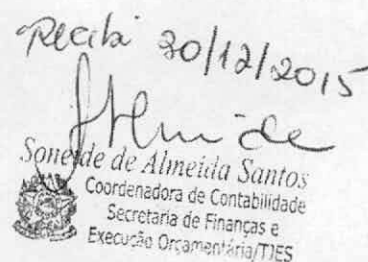 Recibi 30/12/2015
Soneide de Almeida Santos
Coordenadora de Contabilidade
Secretaria de Finanças e
Execução Orçamentária/TJES